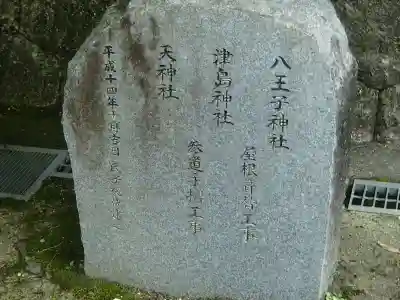 八王子神社
屋根葺替工事
津島神社
参道手摺工事
天神社
平成十四年十月吉日